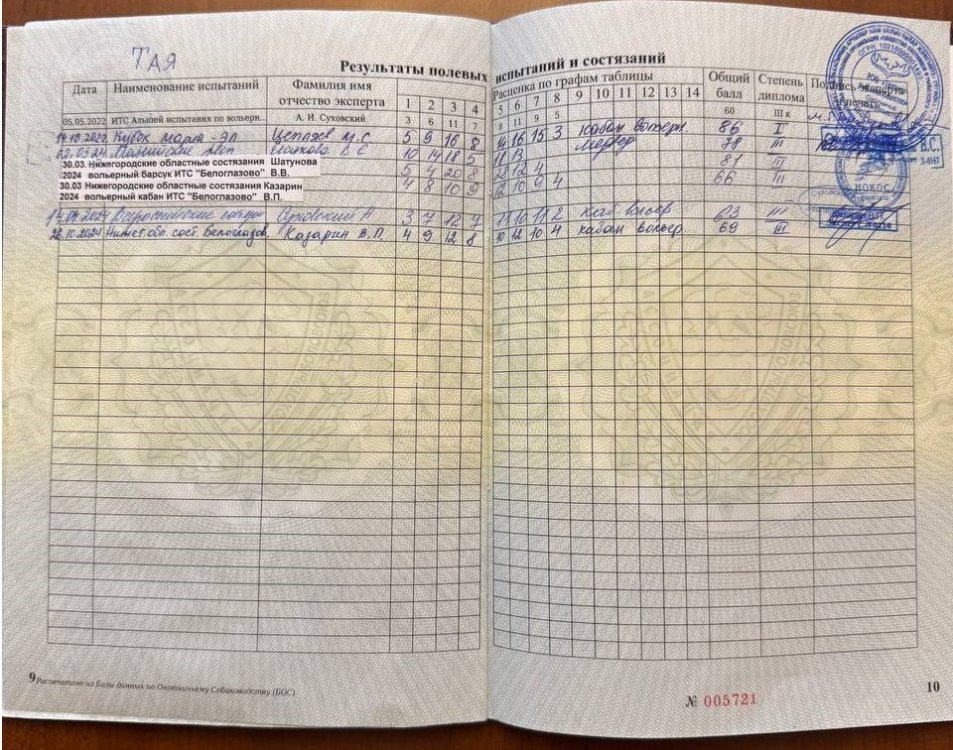 ТАЯ
Результаты полевых испытаний и состязаний
Дата Наименование испытаний Фамилия имя отчество эксперта Расценка по графам таблицы Общий балл Степень диплома Подпись эксперта печать
1 2 3 4 5 6 7 8 9 10 11 12 13 14
05.05.2022 ИТС Алышей испытания по вольерн.. А. И. Суховский 3 6 11 7 8 11 9 5 60 III к
14.10.2022 Кубок Марий-Эл М.С. 5 9 16 8 14 16 15 3 кабан вольерн. 86 I
10 14 18 5 18 13 78 III
30.03. Нижегородские областные состязания Шатунова
2024 вольерный барсук ИТС "Белоглазово" В.В. 5 4 20 8 20 12 4 81 III
30.03 Нижегородские областные состязания Казарин
2024 вольерный кабан ИТС "Белоглазово" В.П. 4 8 10 9 12 10 9 4 66 III
Всероссийские А. 3 7 12 7 11 10 11 2 каб. вольер 63 III
26.10.2024 Нижег.обл. сост. Белоглазов. Казарин В.П. 4 9 12 8 10 12 10 4 кабан вольер. 69 III
9 Распечатано из Базы данных по Охотничьему Собаководству (БОС)
№ 005721
10